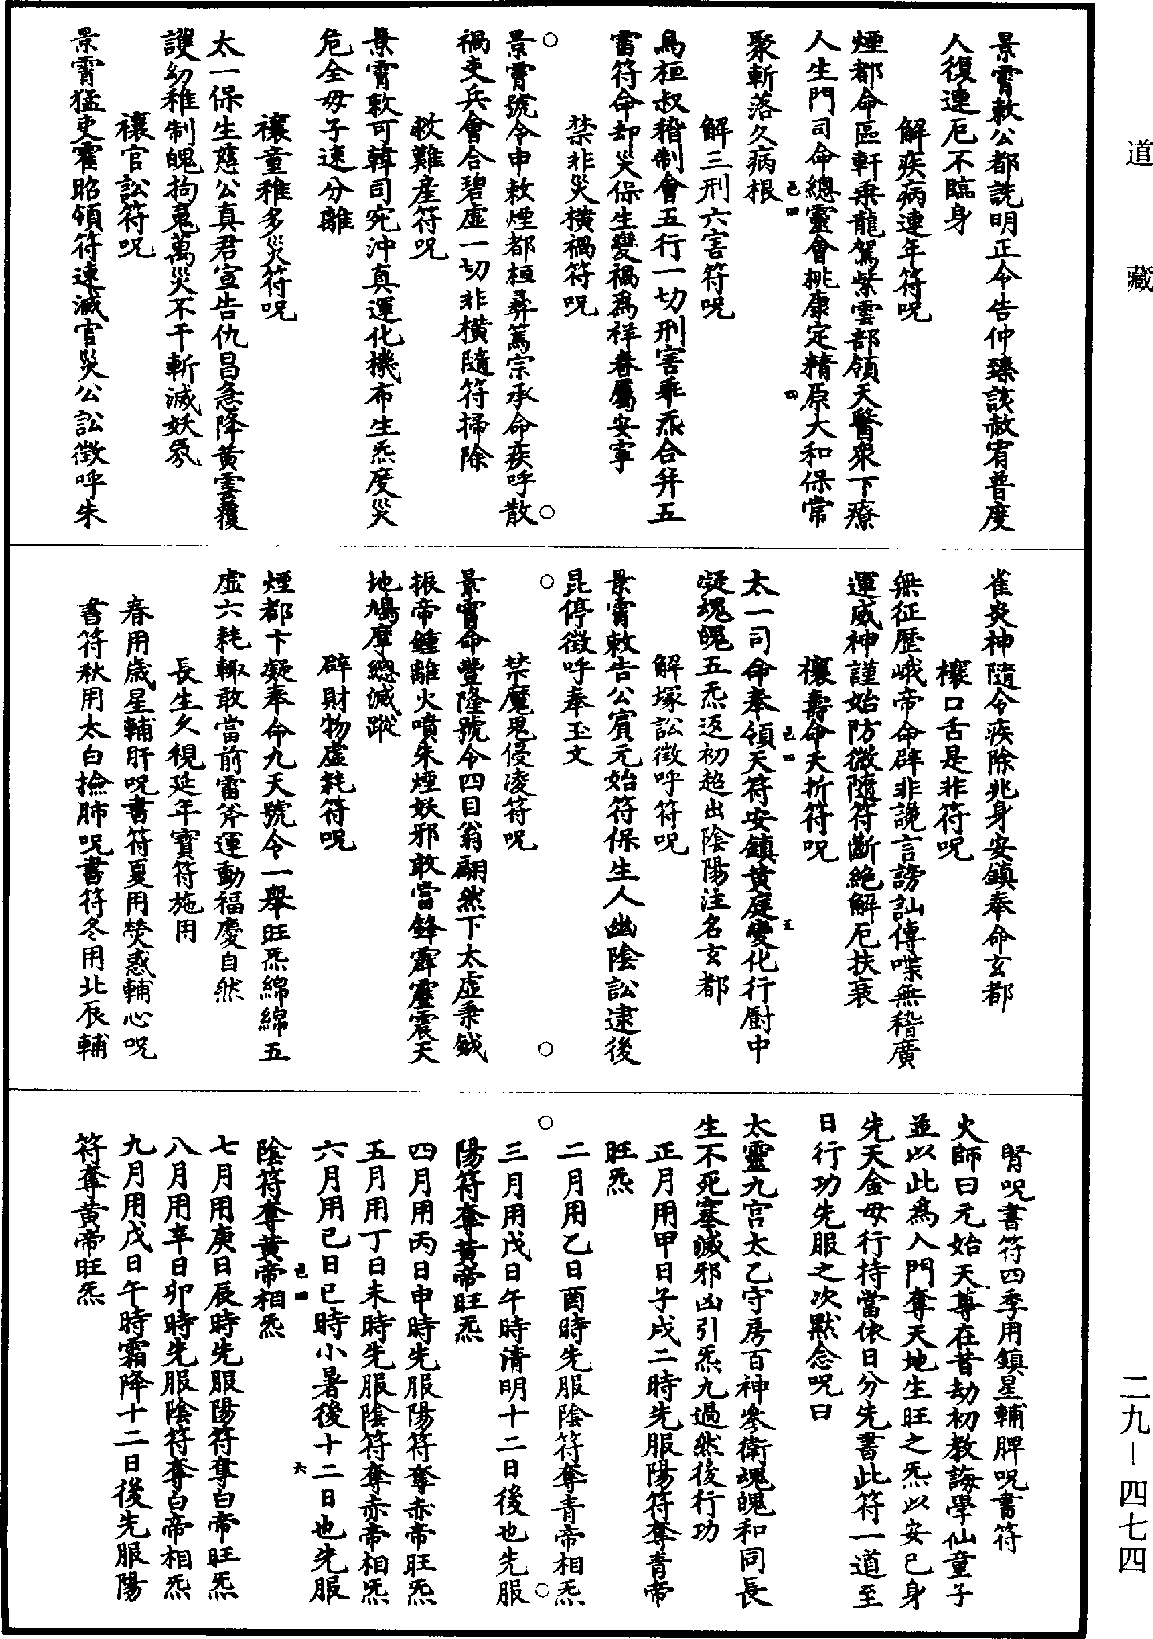 道藏
景霄敕公都詵明正令告仲臻該赦宥普度
人復連厄不臨身
解疾病連年符呪
煙都命區軒乘龍駕紫雲部領天醫眾下療
人生門司命總靈會桃康定精原大和保常
聚斬落久病根
解三刑六害符呪
烏桓叔稽制會五行一切刑害乖炁合并五
雷符命却災保生變禍為祥眷屬安寧
禁非災橫禍符呪
景霄號令申敕煙都桓彛篤宗承命疾呼散
禍吏兵會合碧虛一切非橫隨符掃除
救難產符呪
景霄敕可韓司宛沖真運化機布生炁度災
危全母子速分離
禳童稚多災符呪
太一保生慈公真君宣告仇昌急降黃雲覆
護幼稚制魄拘蒐萬災不干斬滅妖氛
禳官訟符呪
景霄猛吏霍昭領符速滅官災公訟徵呼朱
雀炎神隨令疾除兆身安鎮奉命玄都
禳口舌是非符呪
無征歷峨帝命辟非讒言謗訕傳喋無稽廣
運威神謹始防微隨符斷絕解厄扶衰
禳壽命夭折符呪
太一司命奉領天符安鎮黃庭變化行厨中
凝魂魄五炁返初超出陰陽注名玄都
解塚訟徵呼符呪
景霄敕告公賓元始符保生人幽陰訟逮後
昆停徵呼奉玉文
禁魔鬼侵凌符呪
景霄命豐隆號令四目翁翩然下太虛乘鉞
振帝鍾離火噴朱煙妖邪敢當鋒霹靂震天
地鳩摩總滅蹤
辟財物虛耗符呪
煙都卞凝奉命九天號令一舉旺炁綿綿五
虛六耗輙敢當前雷斧運動福慶自然
長生久視延年寶符施用
春用歲星輔肝呪書符夏用熒惑輔心呪
書符秋用太白撿肺呪書符冬用北辰輔
腎呪書符四季用鎮星輔脾呪書符
火師曰元始天尊在昔劫初教誨學仙童子
並以此為入門奪天地生旺之炁以安己身
先天金母行持當依日分先書此符一道至
日行功先服之次默念呪曰
太靈九宮太乙守房百神參衛魂魄和同長
生不死塞滅邪凶引炁九過然後行功
正月用甲日子戌二時先服陽符奪青帝
旺炁
二月用乙日酉時先服陰符奪青帝相炁
三月用戊日午時清明十二日後也先服
陽符奪黃帝旺炁
四月用丙日申時先服陽符奪赤帝旺炁
五月用丁日未時先服陰符奪赤帝相炁
六月用巳日巳時小暑後十二日也先服
陰符奪黃帝相炁
七月用庚日辰時先服陽符奪白帝旺炁
八月用辛日卯時先服陰符奪白帝相炁
九月用戊日午時霜降十二日後先服陽
符奪黃帝旺炁
二九—四七四